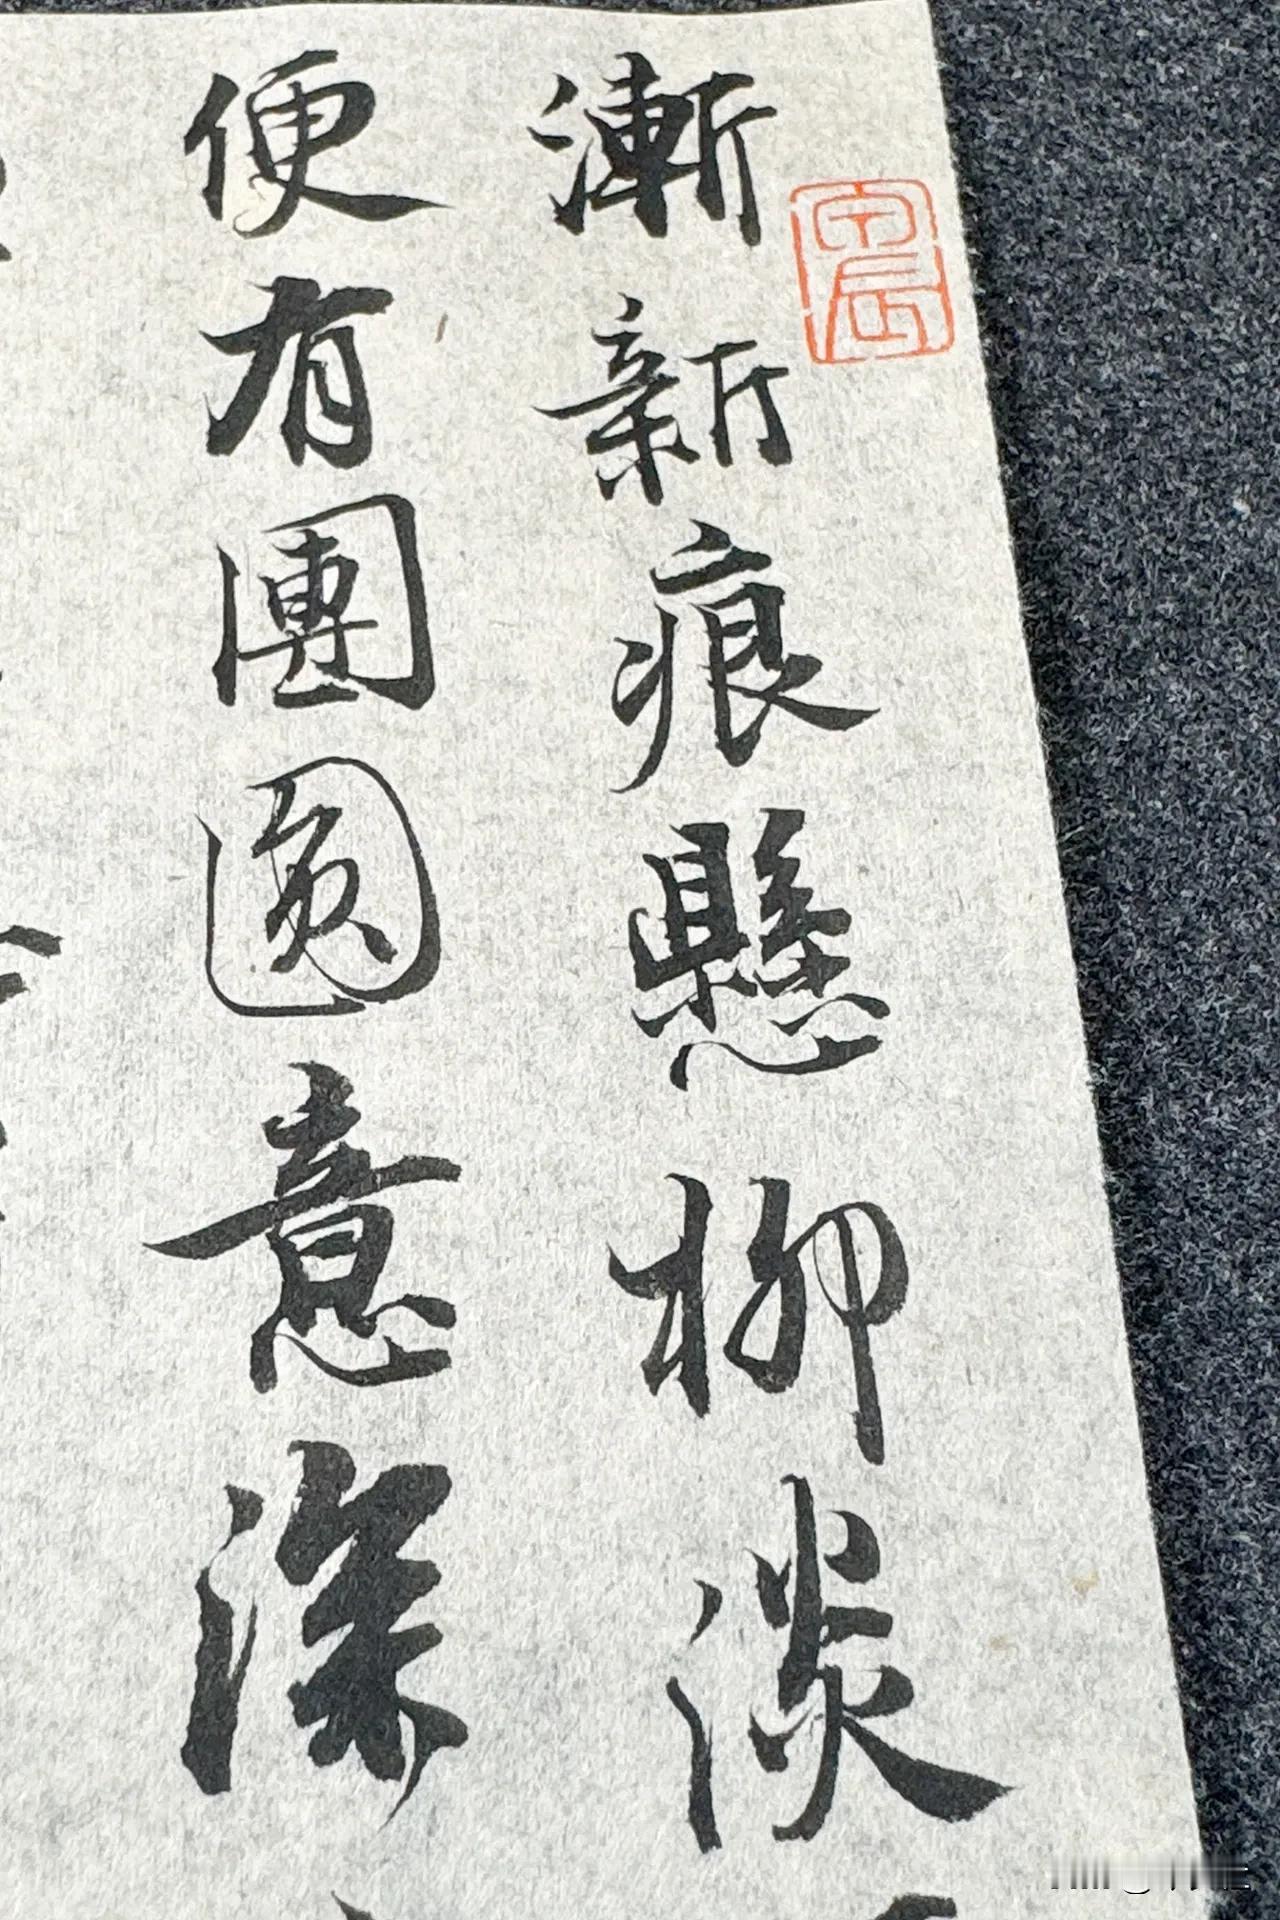 漸新痕懸柳淡
便有團圓意深